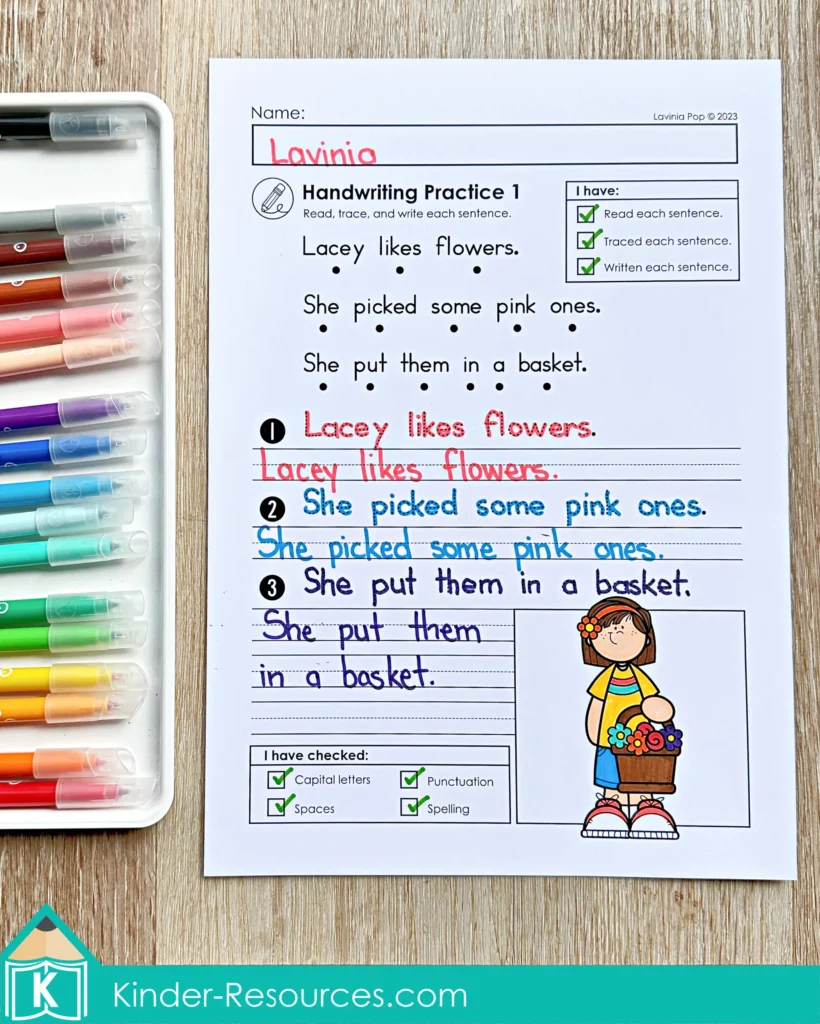 Name:
Lavinia Pop © 2023
Lavinia
Handwriting Practice 1
Read, trace, and write each sentence.
I have:
Read each sentence.
Traced each sentence.
Written each sentence.
Lacey likes flowers.
She picked some pink ones.
She put them in a basket.
1 Lacey likes flowers.
Lacey likes flowers.
2 She picked some pink ones.
She picked some pink ones.
3 She put them in a basket.
She put them
in a basket.
I have checked:
Capital letters
Punctuation
Spaces
Spelling
K
Kinder-Resources.com